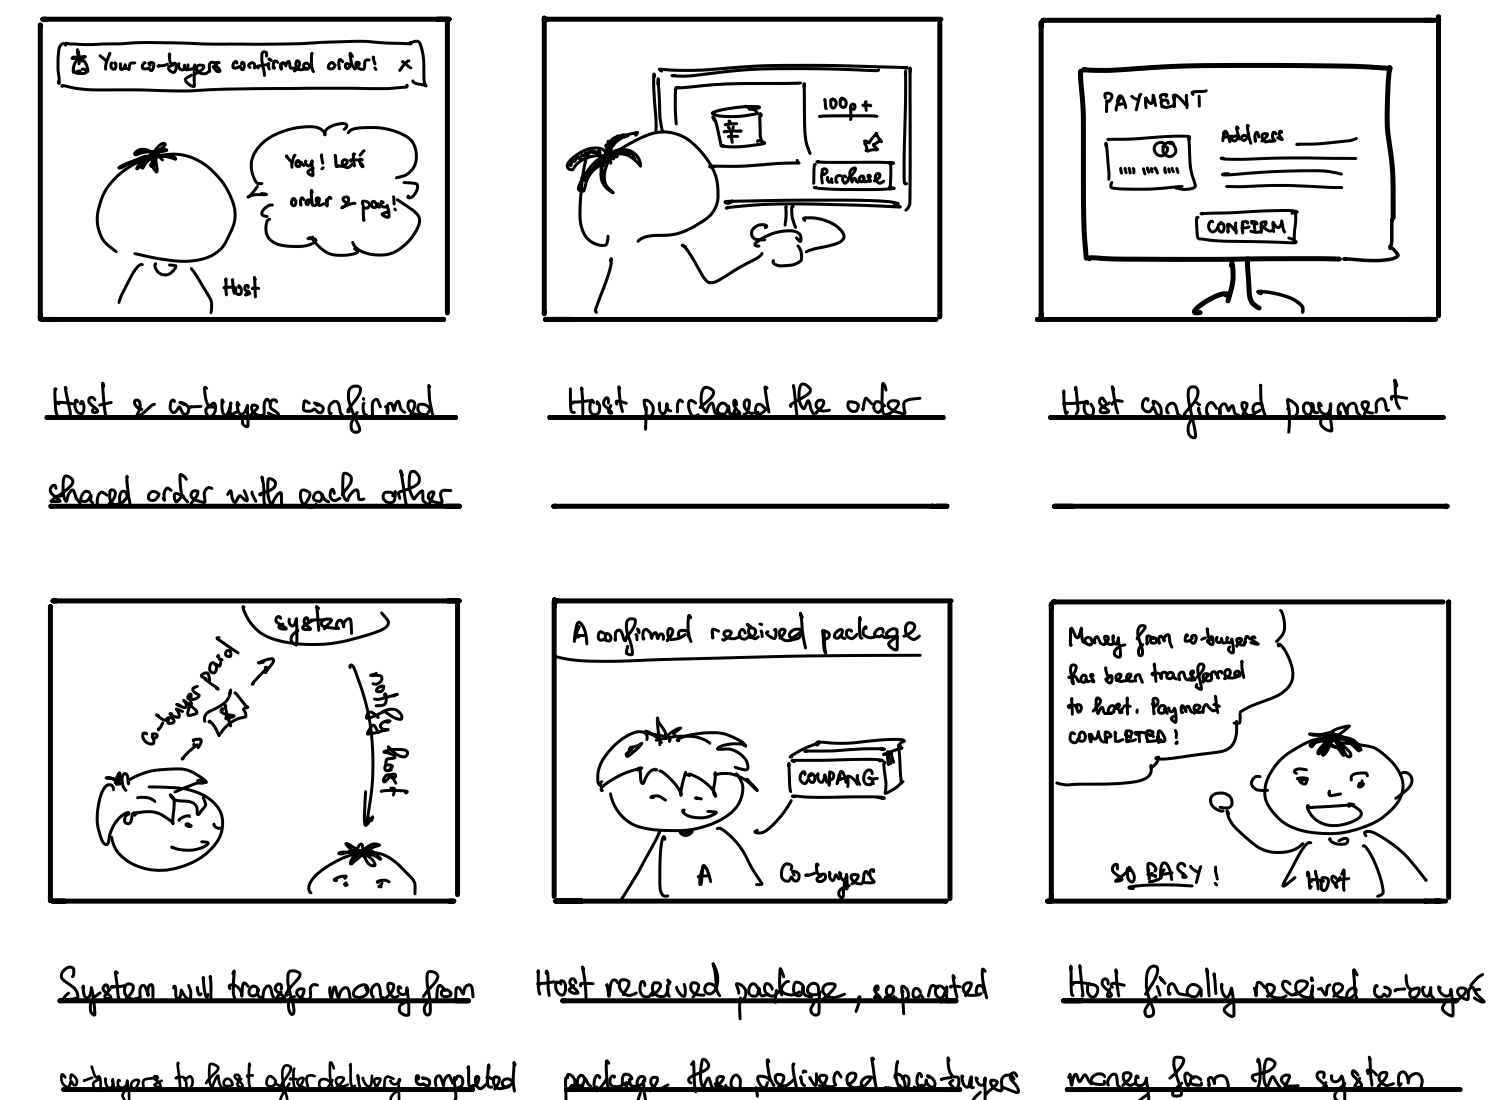 Your co-buyers confirmed order! x
Yay! Let's
order & pay!
Host
Host & co-buyers confirmed
shared order with each other
100p +
Purchase
Host purchased the order
PAYMENT
Address
CONFIRM
Host confirmed payment
system
co-buyer paid
$
notify host
System will transfer money from
co-buyers to host after delivery completed
A confirmed received package
COUPANG
A
Co-buyers
Host received package, separated
package then delivered to co-buyers
Money from co-buyers
has been transferred
to host. Payment
COMPLETED!
SO EASY!
Host
Host finally received co-buyers
money from the system